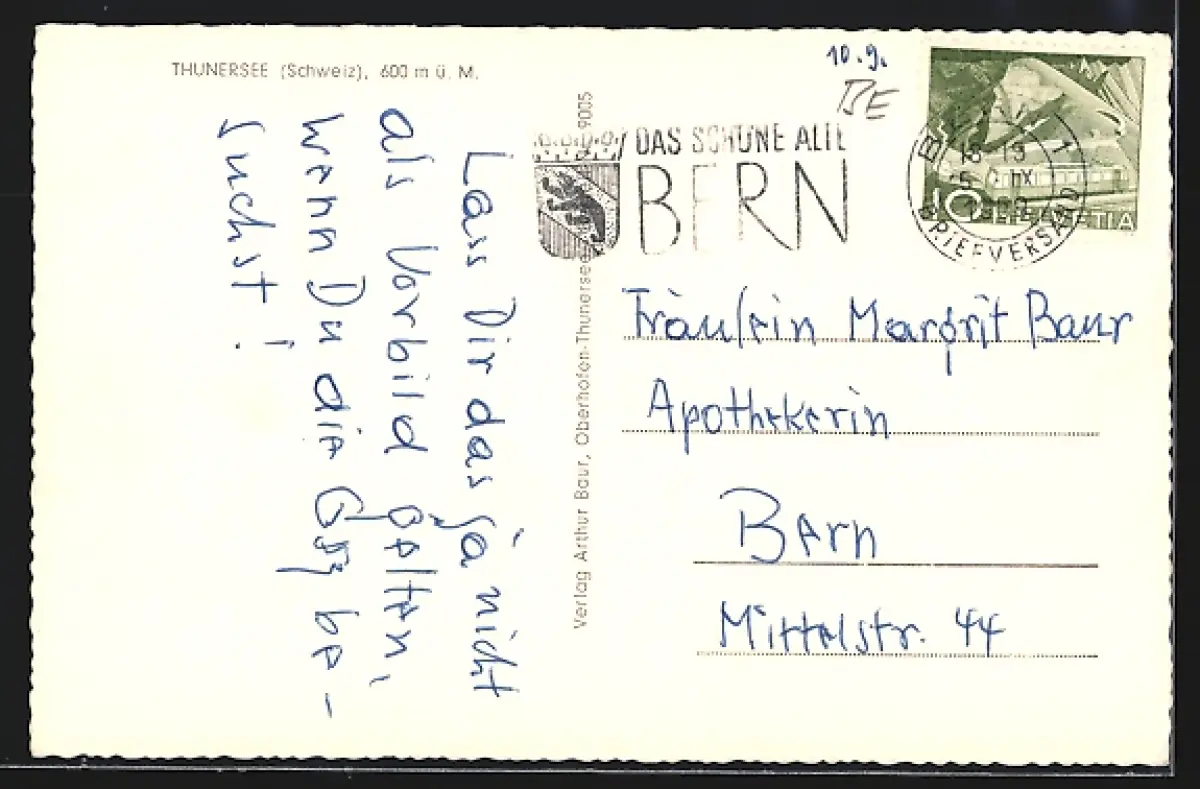 THUNERSEE (Schweiz), 600 m ü. M.
Lass Dir das ja nicht
als Vorbild gelten,
wenn Du die be-
suchst!
Verlag Arthur Baur, Oberhofen-Thunersee 9005
10.9.
BE
DAS SCHÖNE ALTE
BERN
BRIEFVERSAND
1
18-19
IX
10 HELVETIA
Fräulein Margrit Baur
Apothekerin
Bern
Mittelstr. 44